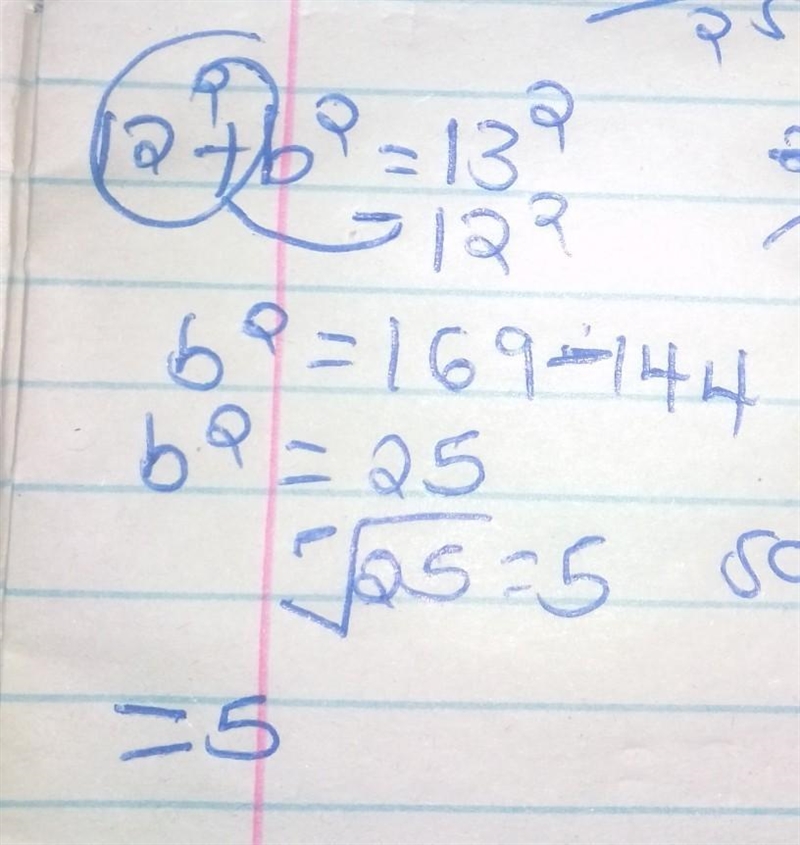 25
12² + b² = 13²
- 12²
b² = 169 - 144
b² = 25
√25 = 5
= 5